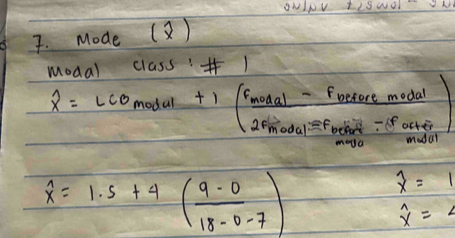 7. Mode (x̂)
modal class : # 1
x̂ = LCB modal + i (fmodal - fbefore modal / 2fmodal - fbefore modal - f after modal)
x̂ = 1.5 + 4 (9 - 0 / 18 - 0 - 7)
x̂ = 1
x̂ =